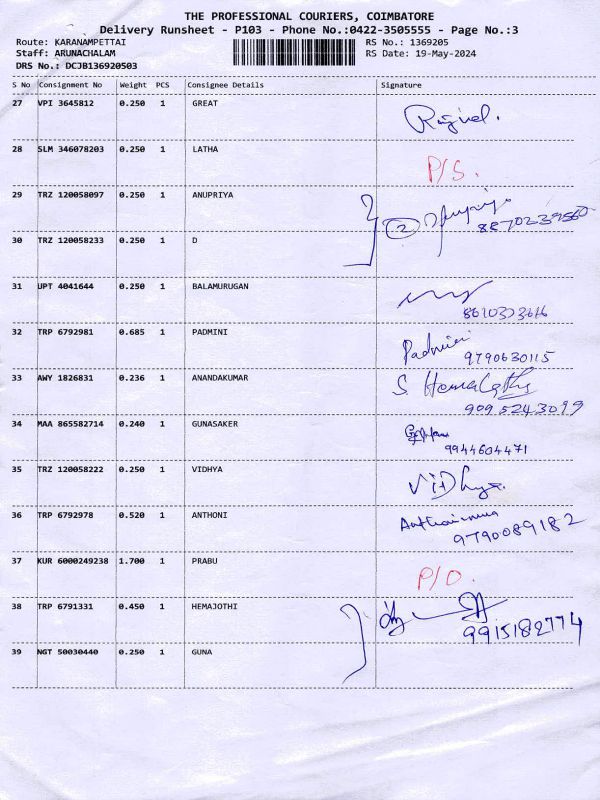 THE PROFESSIONAL COURIERS, COIMBATORE
Delivery Runsheet - P103 - Phone No.:0422-3505555 - Page No.:3
Route: KARANAMPETTAI RS No.: 1369205
Staff: ARUNACHALAM RS Date: 19-May-2024
DRS No.: DCJB136920503
S No Consignment No Weight PCS Consignee Details Signature
27 VPI 3645812 0.250 1 GREAT
28 SLM 346078203 0.250 1 LATHA P/S.
29 TRZ 120058097 0.250 1 ANUPRIYA 2
30 TRZ 120058233 0.250 1 D
31 UPT 4041644 0.250 1 BALAMURUGAN
32 TRP 6792981 0.685 1 PADMINI Padmini
9790630115
33 AWY 1826831 0.236 1 ANANDAKUMAR S. Hemalatha
9095243099
34 MAA 865582714 0.240 1 GUNASAKER
9944604471
35 TRZ 120058222 0.250 1 VIDHYA Vidhya.
36 TRP 6792978 0.520 1 ANTHONI
9790089182
37 KUR 6000249238 1.700 1 PRABU P/O.
38 TRP 6791331 0.450 1 HEMAJOTHI
9915182774
39 NGT 50030440 0.250 1 GUNA